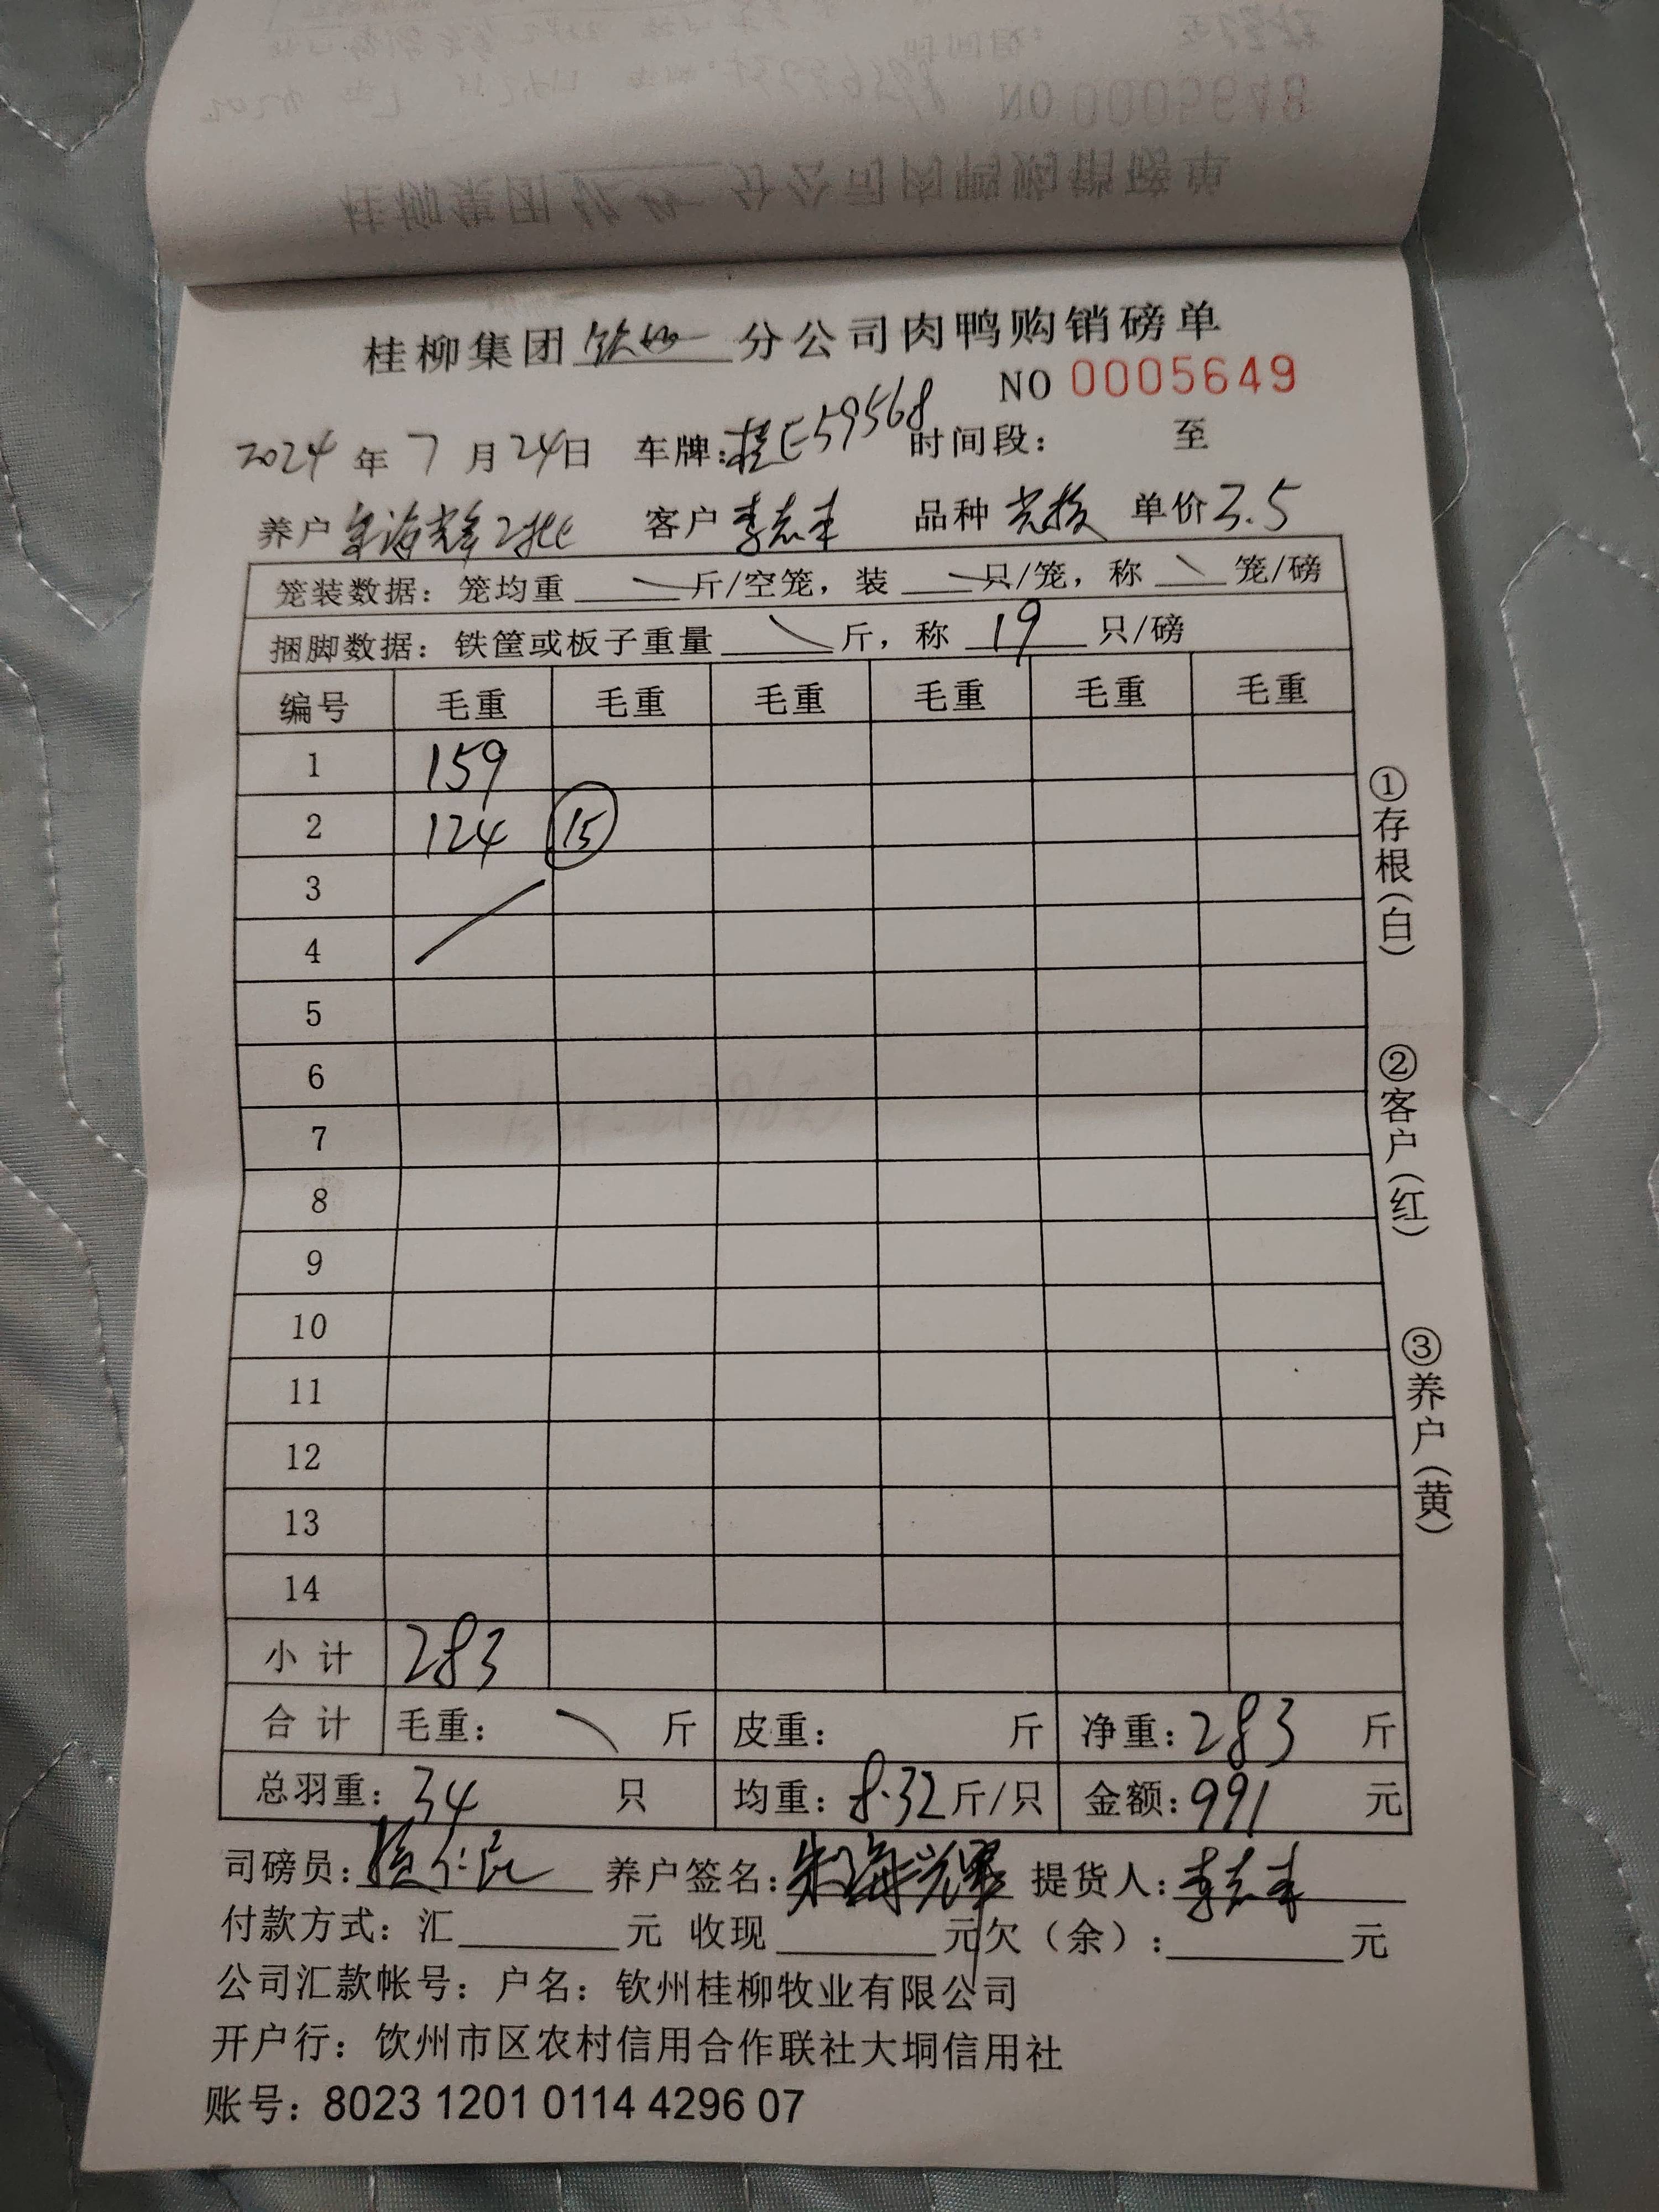 桂柳集团钦州分公司肉鸭购销磅单
NO 0005649
2024年7月24日 车牌:桂E59568 时间段: 至
养户 海辉2批 客户 李志丰 品种 单价3.5
笼装数据: 笼均重 斤/空笼, 装 只/笼, 称 笼/磅
捆脚数据: 铁筐或板子重量 斤, 称 19 只/磅
编号 毛重 毛重 毛重 毛重 毛重 毛重
1 159
2 124 15
3
4
5
6
7
8
9
10
11
12
13
14
小计 283
合计 毛重: 斤 皮重: 斤 净重: 283 斤
总羽重: 34 只 均重: 8.32斤/只 金额: 991 元
司磅员: 养户签名: 朱海辉 提货人: 李志丰
付款方式: 汇 元 收现 元欠(余): 元
公司汇款帐号: 户名: 钦州桂柳牧业有限公司
开户行: 钦州市区农村信用合作联社大垌信用社
账号: 8023 1201 0114 4296 07
①存根(白)
②客户(红)
③养户(黄)